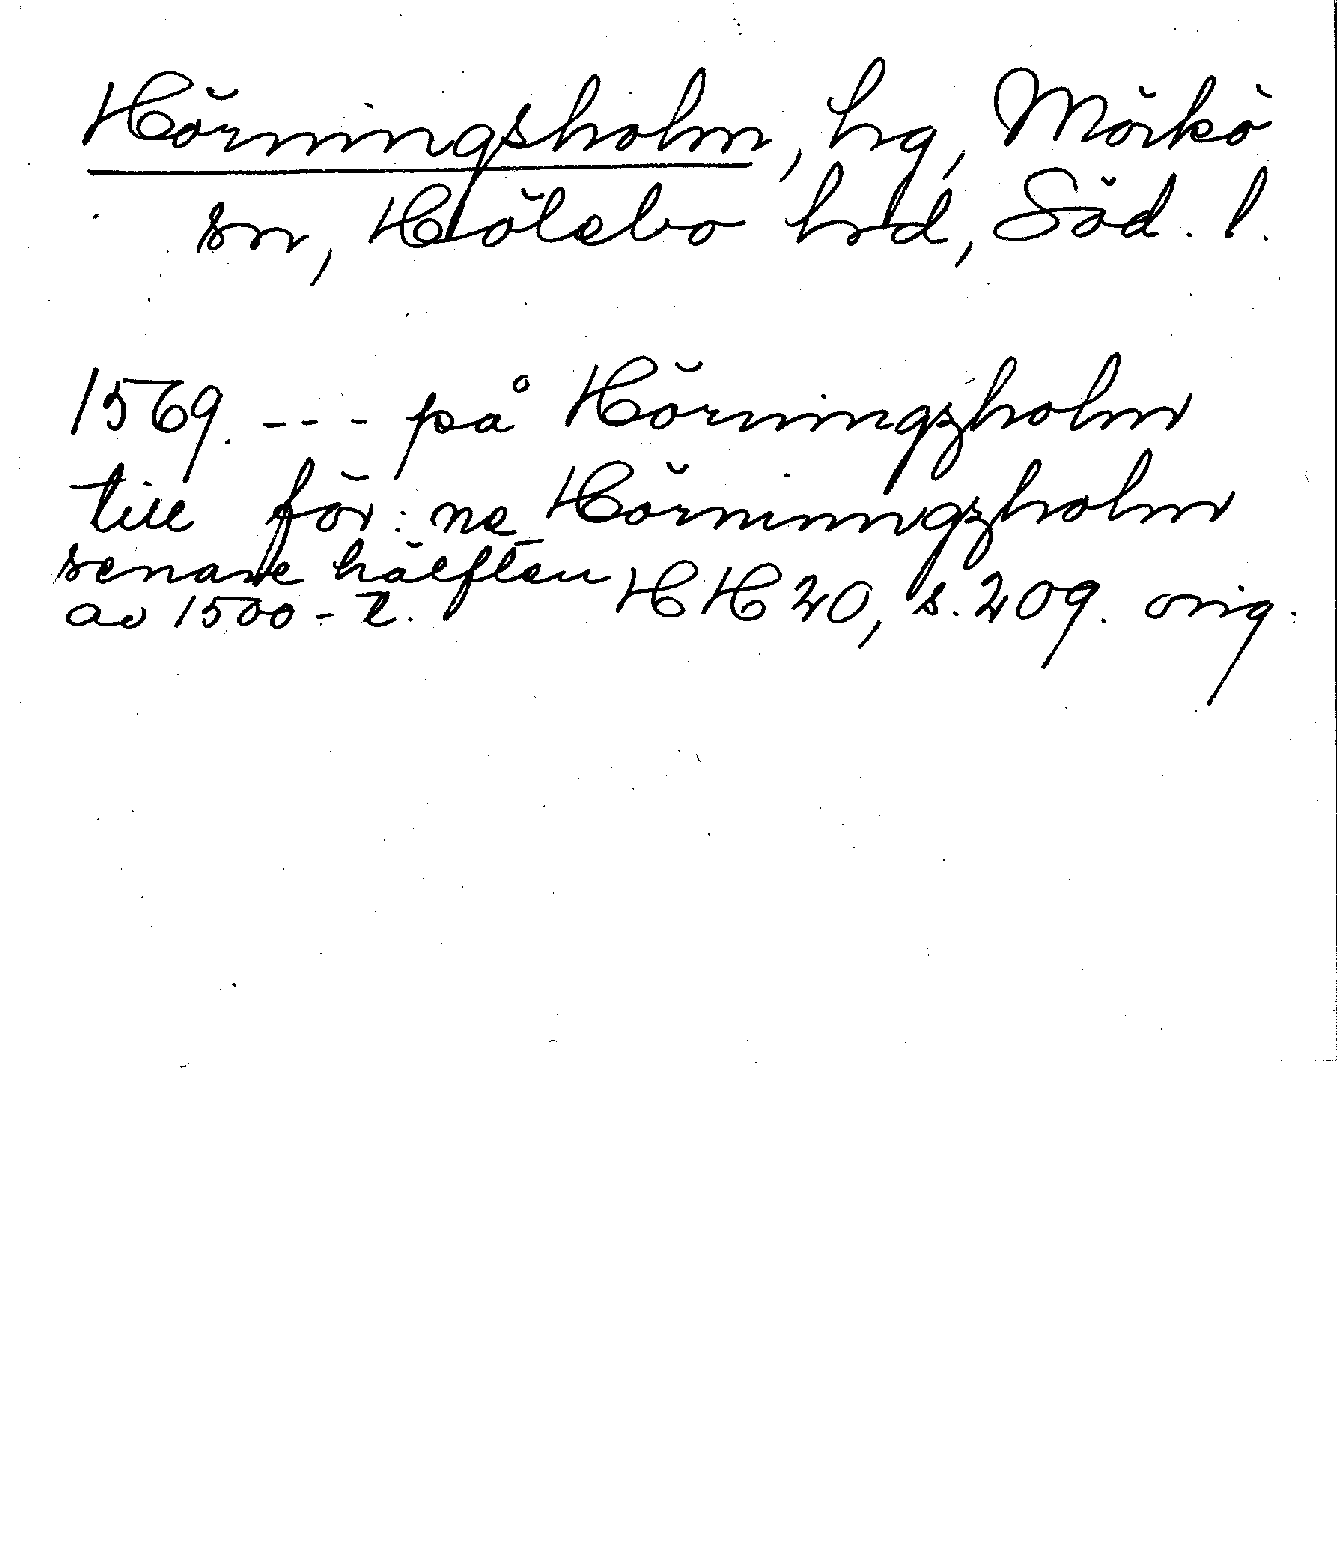 Hörningsholm, hg, Mörkö
sn, Hölebo hrd, Söd. l.
1569. --- på Hörningzholm
till för: ne Hörninngzholm
senare hälften
av 1500-t. HH 20, s. 209. orig.